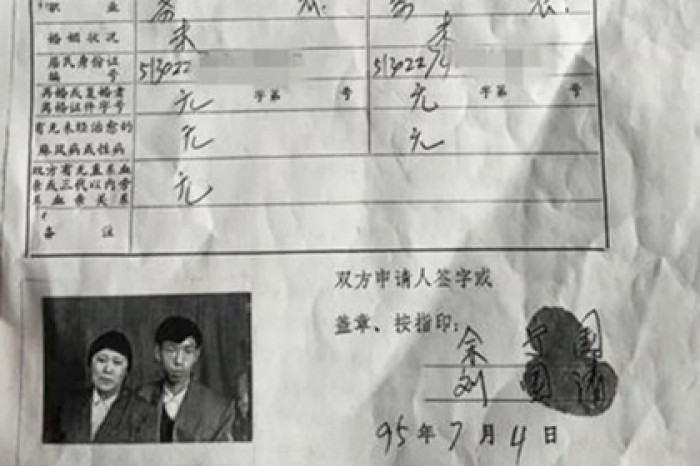 职 业 务 农 务 农
婚姻状况 未 未
居民身份证 513022 513022
编 号
再婚或复婚者 元 字第 号 元 字第 号
离婚证件字号
有无未经治愈的 元 元
麻风病或性病
双方有无直系血 元
亲或三代以内旁
系血亲关系
备 注
双方申请人签字或
盖章、按指印：
余 国
刘 国 清
95 年 7 月 4 日